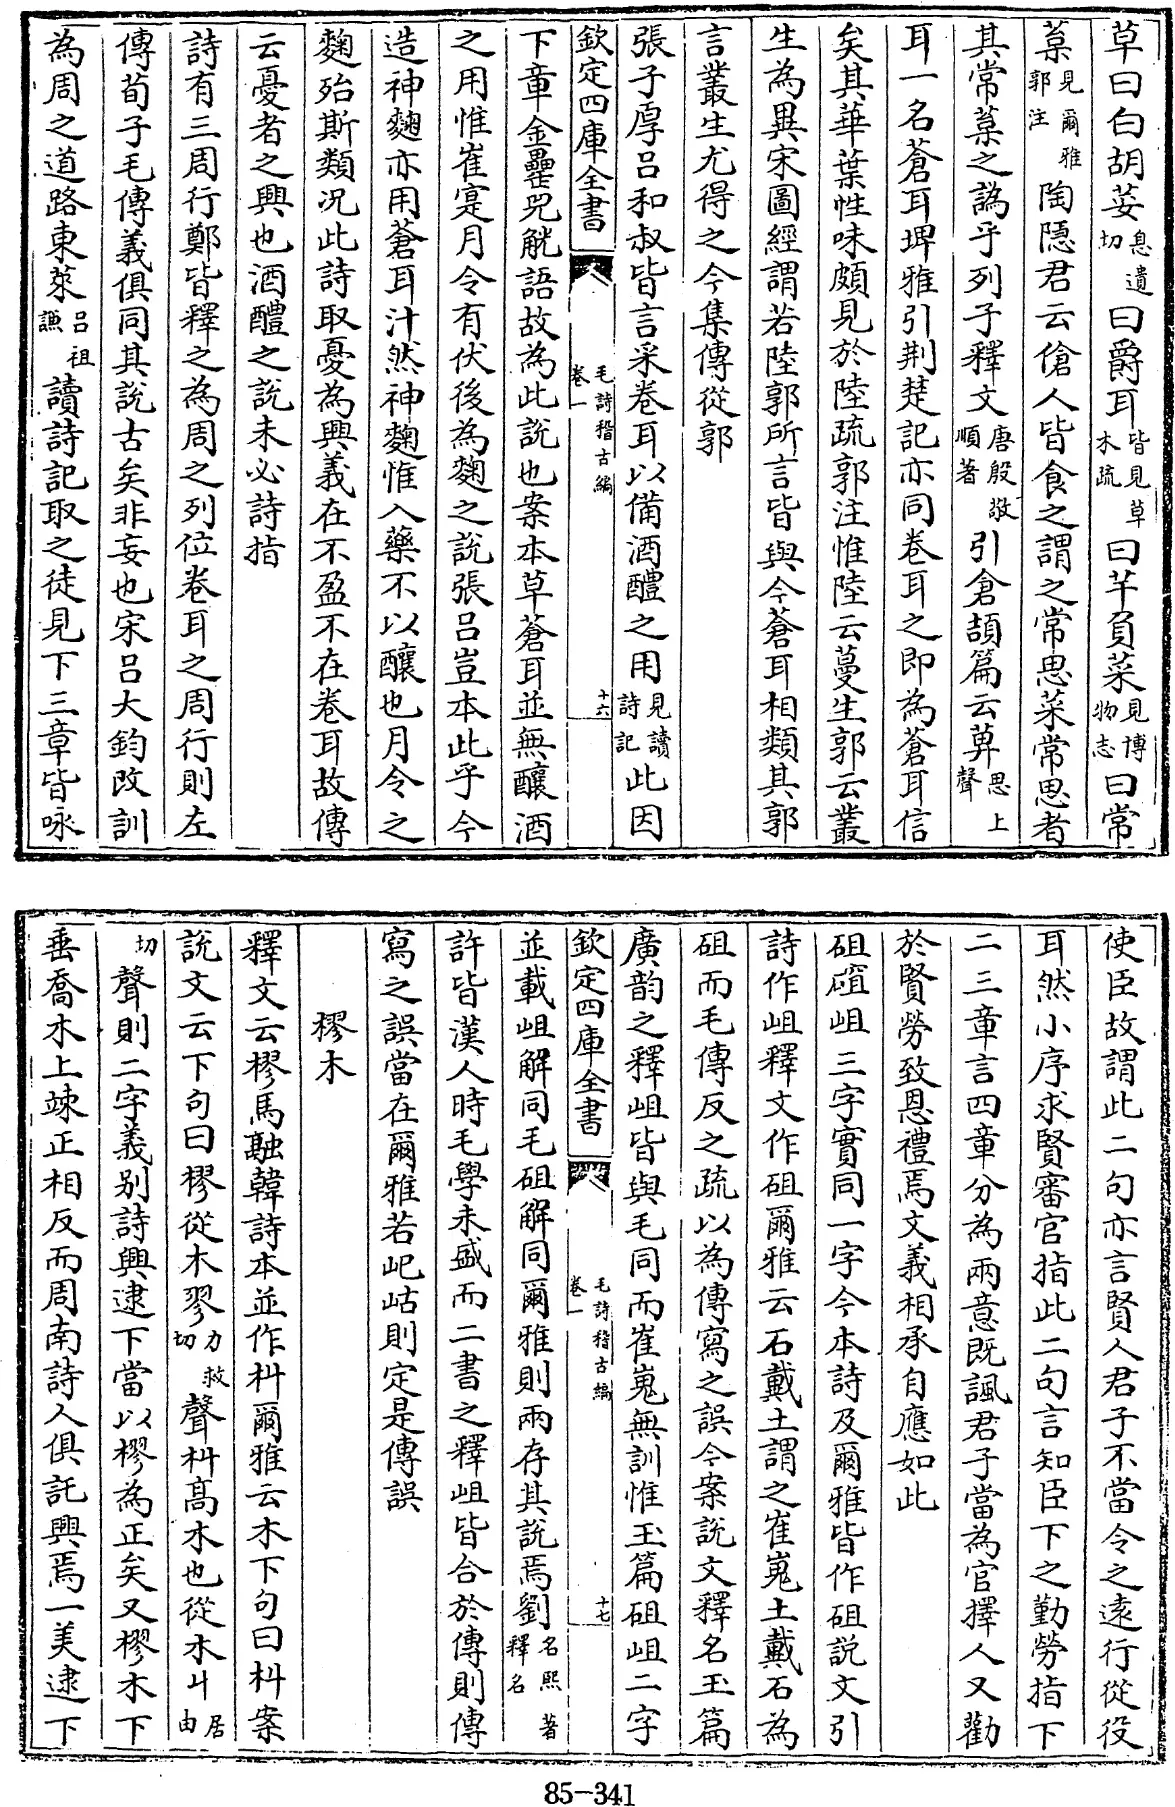 草曰白胡荽息遺切曰爵耳皆見草木疏曰羊負菜見博物志曰常
葈見爾雅郭注陶隱君云傖人皆食之謂之常思菜常思者
其常葈之譌乎列子釋文唐殷敬順著引倉頡篇云葸思上聲
耳一名蒼耳埤雅引荆楚記亦同卷耳之即為蒼耳信
矣其華葉性味頗見於陸疏郭注惟陸云蔓生郭云叢
生為異宋圖經謂若陸郭所言皆與今蒼耳相類其郭
言叢生尤得之今集傳從郭
張子厚吕和叔皆言采卷耳以備酒醴之用見讀詩記此因
欽定四庫全書 毛詩稽古編 卷一 十六
下章金罍兕觥語故為此說也案本草蒼耳並無釀酒
之用惟崔寔月令有伏後為麴之說張吕豈本此乎今
造神麴亦用蒼耳汁然神麴惟入藥不以釀也月令之
麴殆斯類况此詩取憂為興義在不盈不在卷耳故傳
云憂者之興也酒醴之說未必詩指
詩有三周行鄭皆釋之為周之列位卷耳之周行則左
傳荀子毛傳義俱同其說古矣非妄也宋吕大鈞改訓
為周之道路東萊吕祖謙讀詩記取之徒見下三章皆咏
使臣故謂此二句亦言賢人君子不當令之遠行從役
耳然小序求賢審官指此二句言知臣下之勤勞指下
二三章言四章分為兩意既諷君子當為官擇人又勸
於賢勞致恩禮焉文義相承自應如此
砠䃊岨三字實同一字今本詩及爾雅皆作砠説文引
詩作岨釋文作砠爾雅云石戴土謂之崔嵬土戴石為
砠而毛傳反之疏以為傳寫之誤今案説文釋名玉篇
廣韵之釋岨皆與毛同而崔嵬無訓惟玉篇砠岨二字
欽定四庫全書 毛詩稽古編 卷一 十七
並載岨解同毛砠解同爾雅則兩存其說焉劉名熙著釋名
許皆漢人時毛學未盛而二書之釋岨皆合於傳則傳
寫之誤當在爾雅若屺岵則定是傳誤
樛木
釋文云樛馬融韓詩本並作朻爾雅云木下句曰朻案
說文云下句曰樛從木翏力救切聲朻高木也從木丩居由
切聲則二字義别詩興逮下當以樛為正矣又樛木下
垂喬木上竦正相反而周南詩人俱託興焉一美逮下
85-341